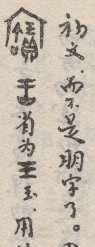 初文，而不是朋字了。
省为王玉，用